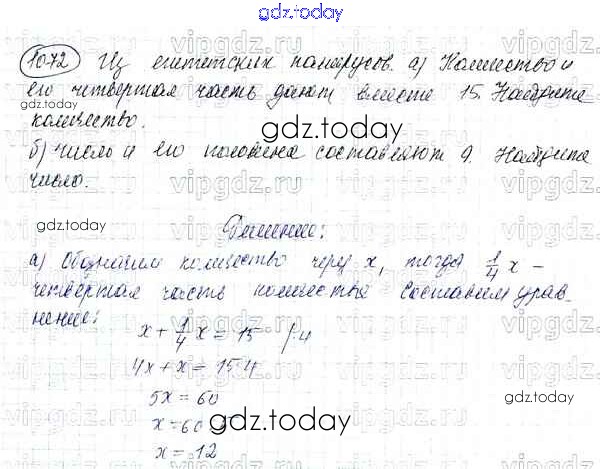 gdz.today
1072 Из египетских папирусов. а) Количество и
его четвертая часть дают вместе 15. Найдите
количество.
gdz.today
б) Число и его половина составляют 9. Найдите
число.
gdz.today
gdz.today
Решение:
а) Обозначим количество через x, тогда 1/4 x –
четвёртая часть количества Составим урав-
нение:
x + 1/4 x = 15 /·4
4x + x = 15·4
5x = 60
gdz.today
x = 60
gdz.today
x = 12